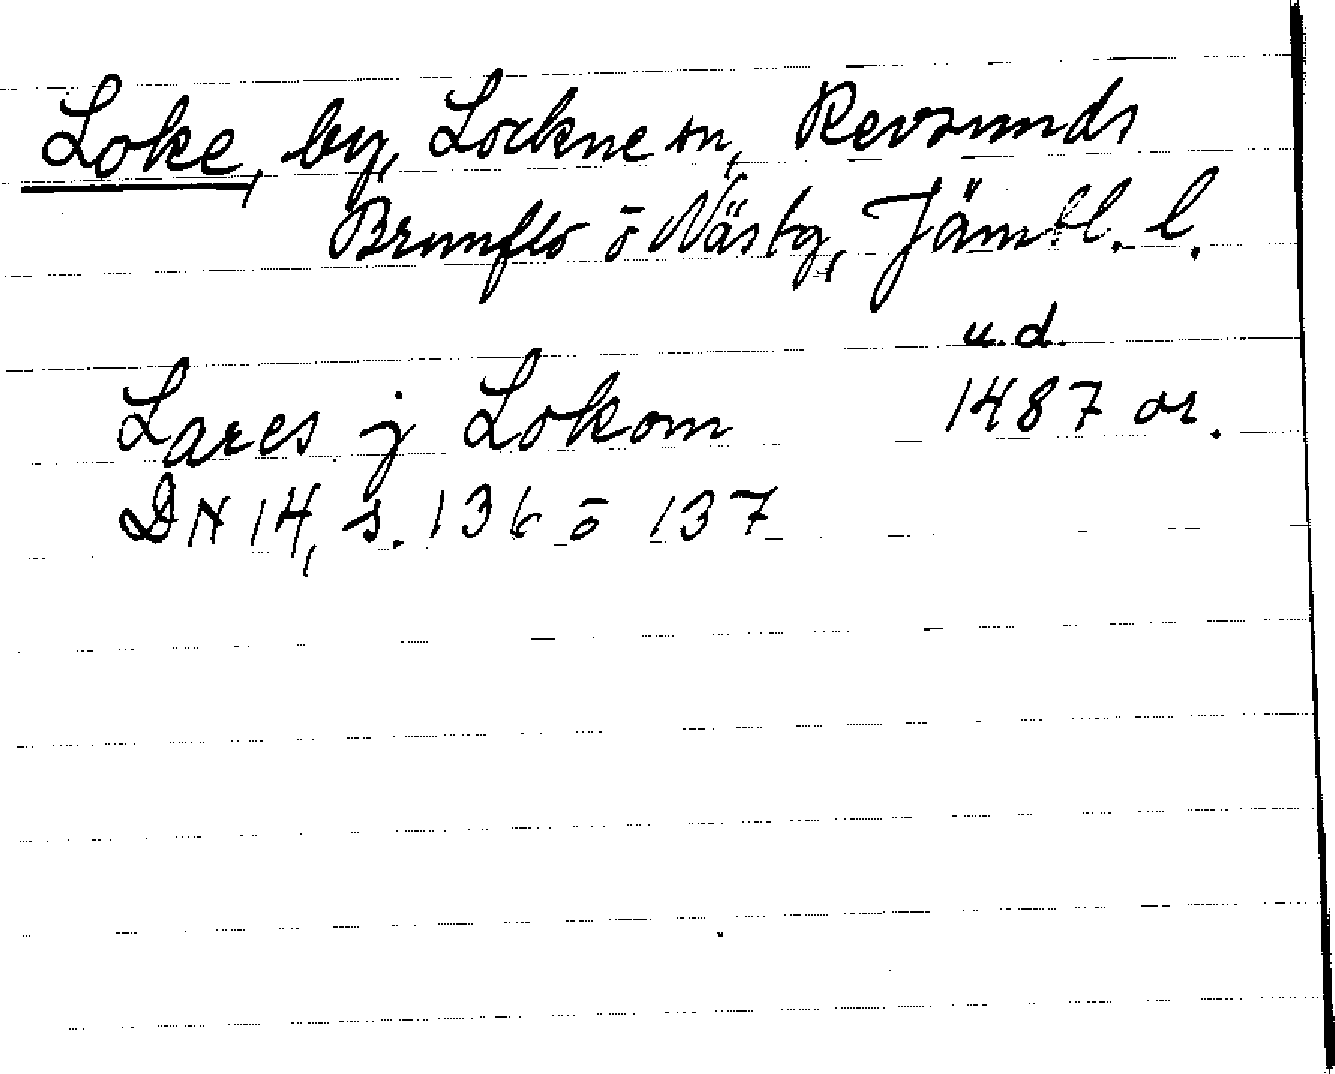 Loke, by, Lockne sn, Revsunds
Brunflo ō Näs tg, Jämtl. l.
u.d.
Lares j Lokom 1487 or.
DN 14, s. 136 ō 137